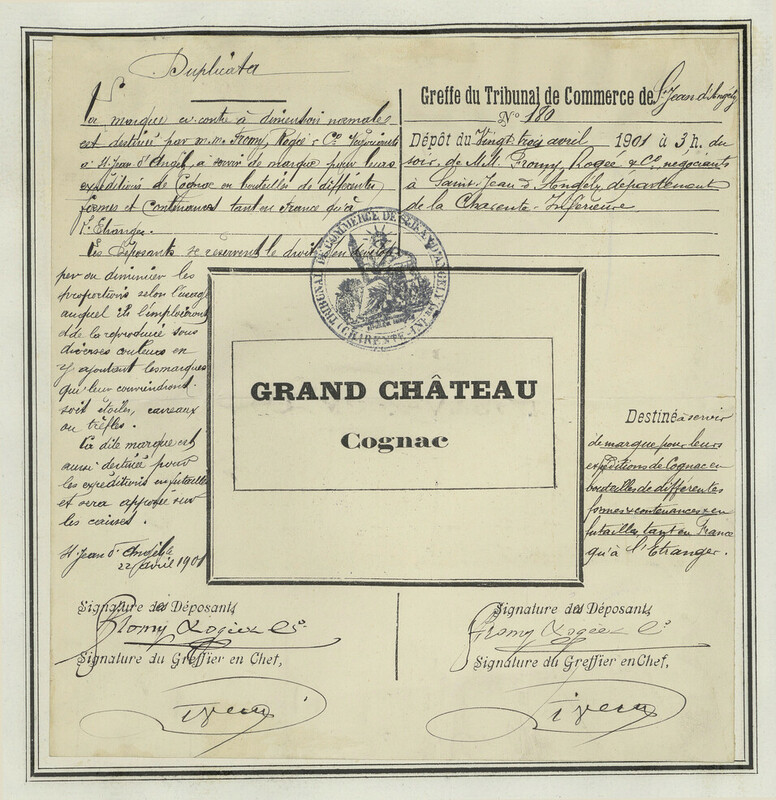 Duplicata
La marque ci contre à dimension normale
est destinée par M.M. Fromy, Rogée & Cº Négociants
à St Jean d'Angély, à servir de marque pour leurs
expéditions de Cognac en bouteilles de différentes
formes et contenances tant en France qu'à
l'Etranger.
Les Déposants se réservent le droit d'en dévelop
per ou diminuer les
proportions selon l'usage
auquel ils l'emploieront
et de la reproduire sous
diverses couleurs en
y ajoutant les marques
qui leur conviendront
soit étoiles, carreaux
ou trèfles.
La dite marque est
aussi destinée pour
les expéditions en futailles
et sera apposée sur
les caisses.
St Jean d'Angély le
22 avril 1901
Greffe du Tribunal de Commerce de St Jean d'Angély
Nº 180
Dépôt du Vingt trois avril 1901 à 3 h. du
soir, de M.M. Fromy, Rogée & Cº, négociants
à Saint-Jean d'Angély, département
de la Charente-Inférieure
TRIBUNAL DE COMMERCE DE ST JEAN D'ANGELY
(CHARENTE-INFRE)
GRAND CHÂTEAU
Cognac
Destiné à servir
de marque pour leurs
expéditions de Cognac en
bouteilles de différentes
formes & contenances & en
futailles, tant en France
qu'à l'Etranger.
Signature des Déposants
Fromy Rogée & Cº
Signature du Greffier en Chef,
Signature des Déposants
Fromy Rogée & Cº
Signature du Greffier en Chef,